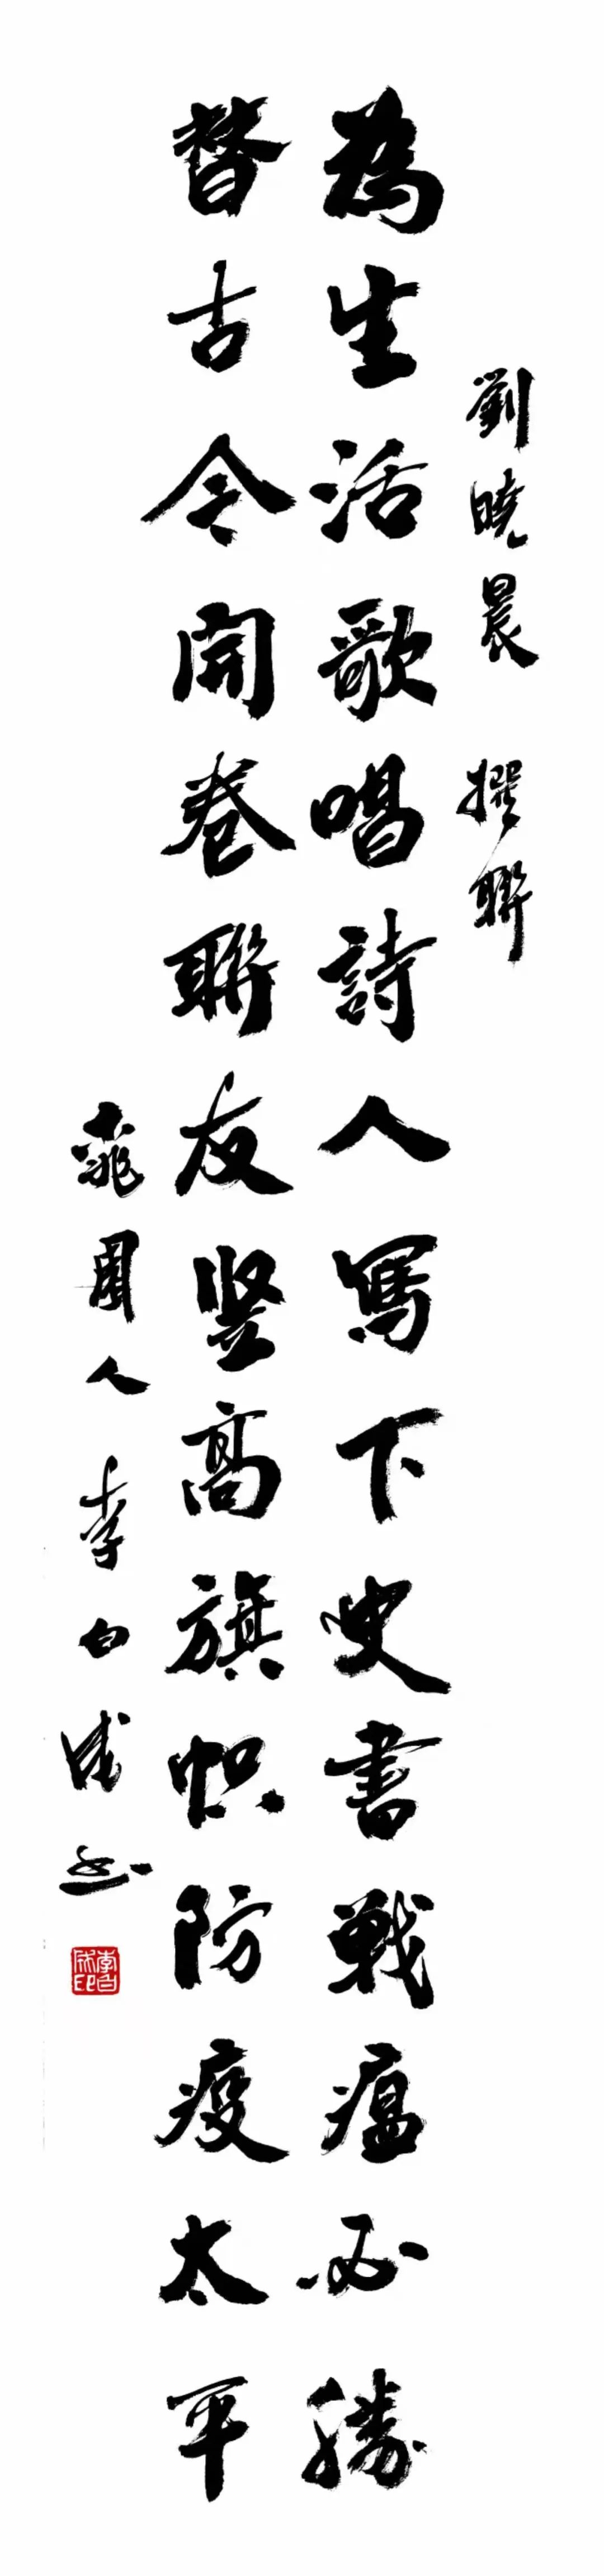 劉曉晨 撰聯
為生活歌唱詩人寫下史書戰瘟必勝
替古今開卷聯友竖高旗帜防疫太平
人 李白成书
李白成印